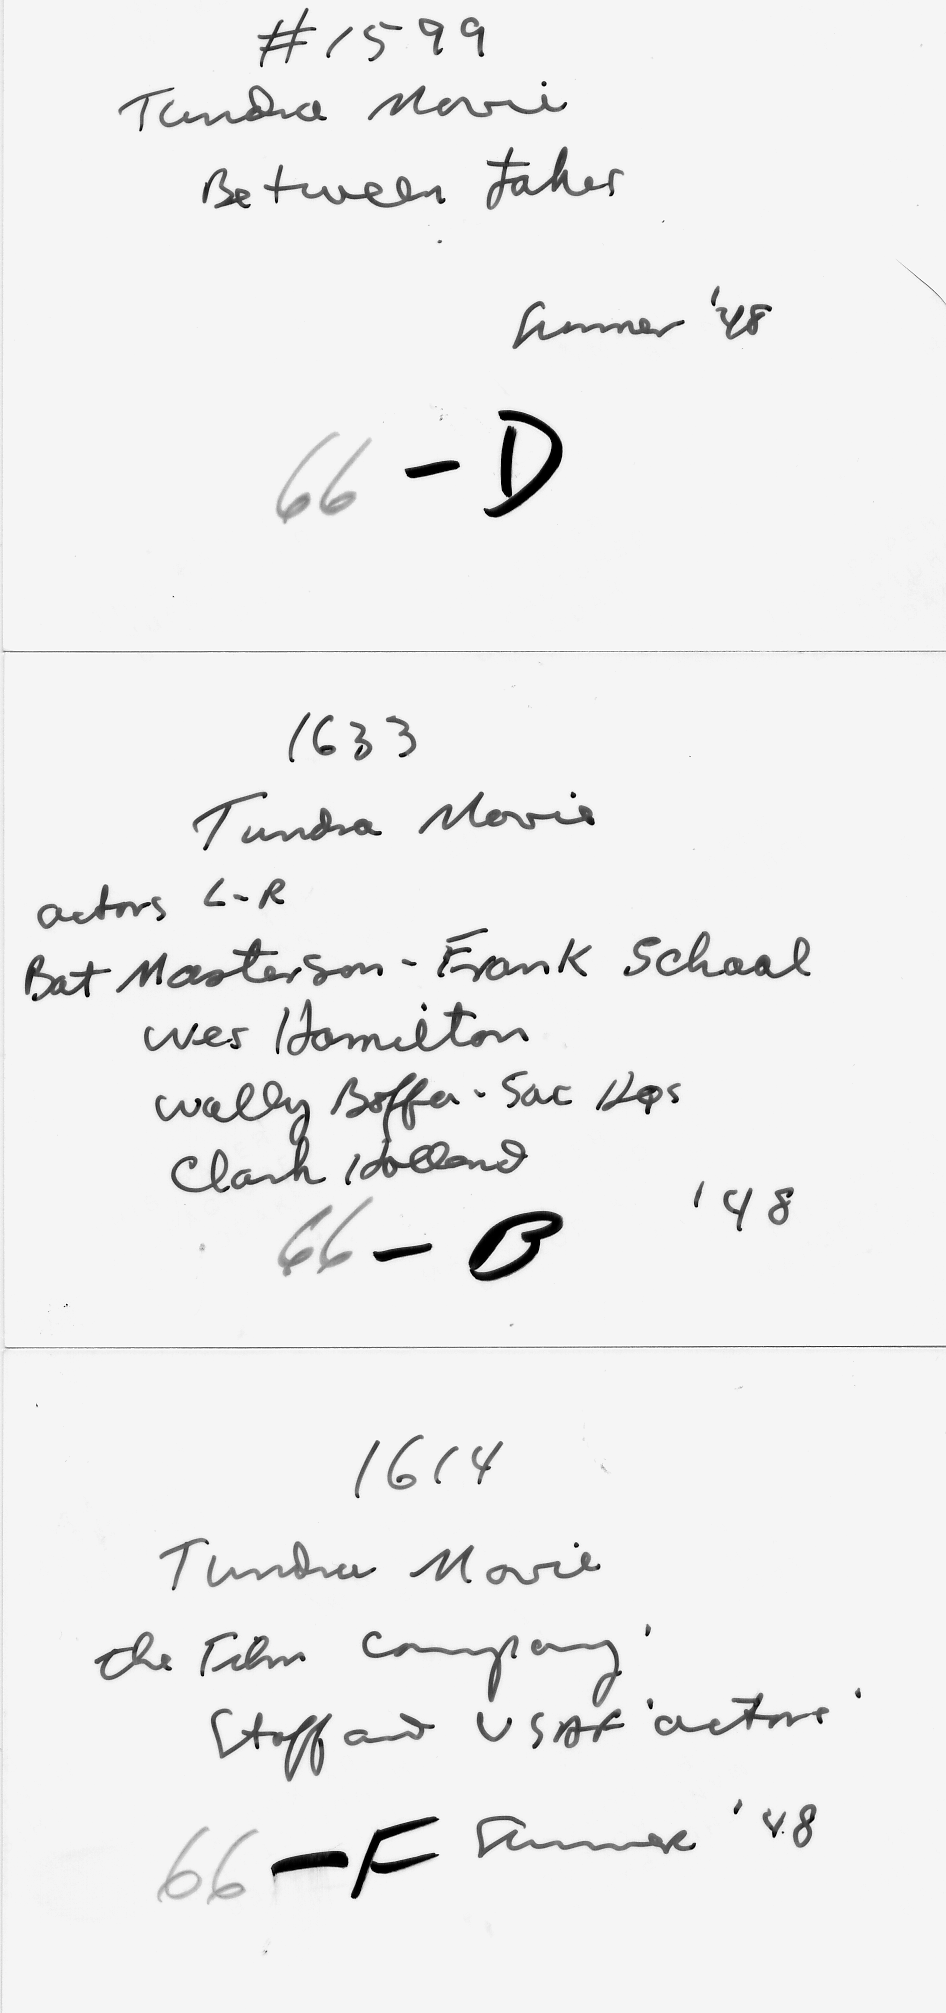 #1599
Tundra Movie
Between takes
Summer '48
66 - D
1633
Tundra Movie
actors L-R
Bat Masterson - Frank Schaal
Wes Hamilton
Wally Boffa - Sac Hqs
Clark Holland
'48
66 - B
1614
Tundra Movie
the Film Company'
Staff and USAF 'actors'
66 - F Summer '48